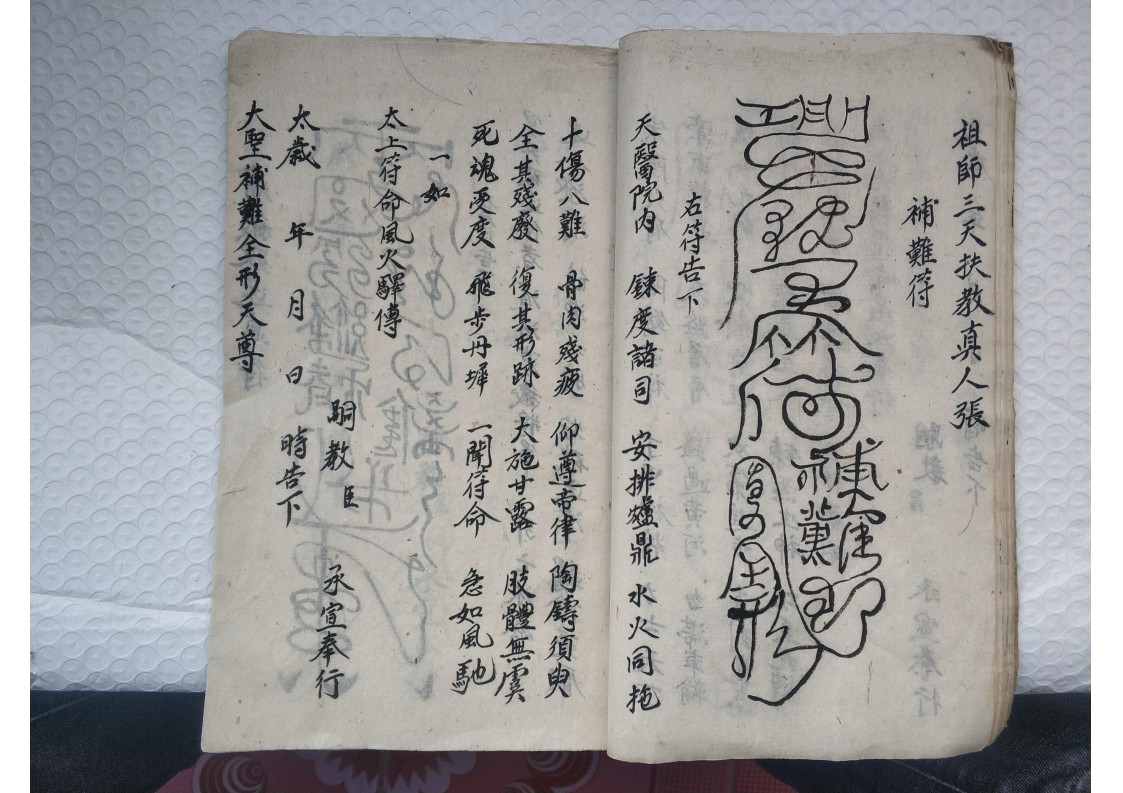 祖師三天扶教真人張
補難符
右符告下
天醫院內　錬度諸司　安排爐鼎　水火同拖
十傷八難　骨肉殘疲　仰遵帝律　陶鑄須臾
全其殘廢　復其形跡　大施甘露　肢體無虞
死魂更度　飛步丹墀　一聞符命　急如風馳
一如
太上符命風火驛傳
嗣教臣　承宣奉行
太歲　年　月　日　時告下
大聖補難全形天尊